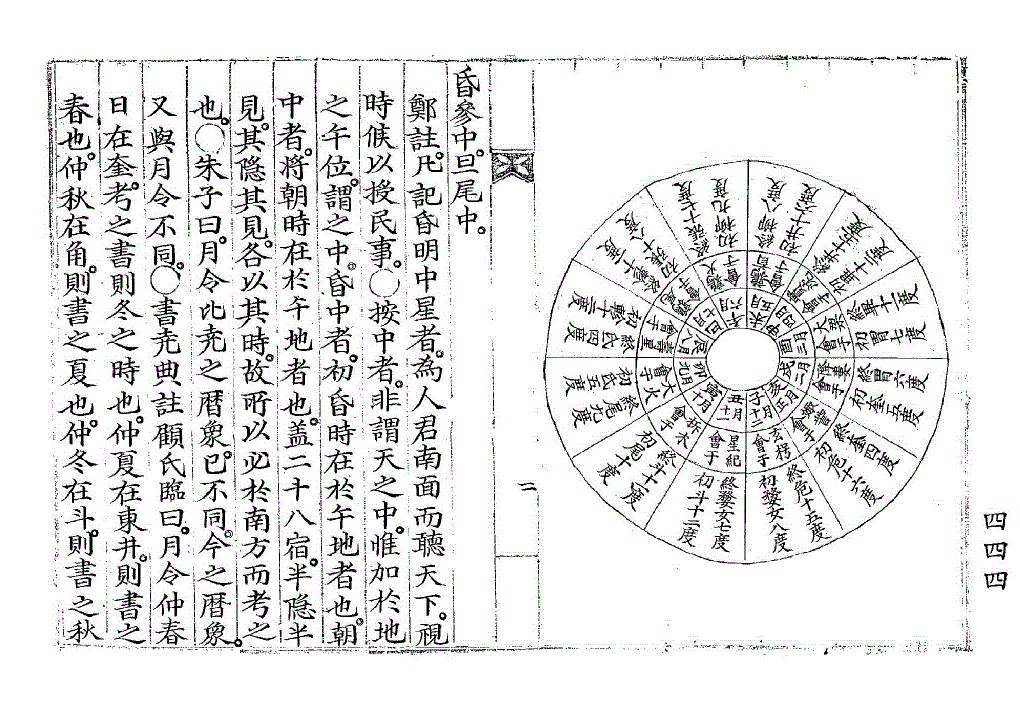 四四四
正月
亥
會于
終奎四度
初危十六度
二月
戌
降婁
會于
終胃六度
初奎五度
三月
酉
大梁
會于
終畢十一度
初胃七度
四月
申
會于
終井十五度
初畢十二度
五月
未
鶉首
會于
終柳八度
初井十六度
六月
午
鶉火
會于
終張十七度
初柳九度
七月
巳
鶉尾
會于
終軫十一度
初張十八度
八月
辰
壽星
會于
終氐四度
初軫十二度
九月
卯
大火
會于
終尾九度
初氐五度
十月
寅
析木
會于
終斗十一度
初尾十度
十一月
丑
星紀
會于
終婺女七度
初斗十二度
十二月
子
玄枵
會于
終危十五度
初婺女八度
二
昏參中。旦尾中。
鄭註。凡記昏明中星者。為人君南面而聽天下。視
時候以授民事。○按中者。非謂天之中。惟加於地
之午位。謂之中。昏中者。初昏時在於午地者也。朝
中者。將朝時在於午地者也。盖二十八宿。半隐半
見。其隐其見。各以其時。故所以必於南方而考之
也。○朱子曰。月令比尭之暦象。已不同。今之暦象。
又與月令不同。○書尭典註顧氏臨曰。月令仲春
日在奎。考之書則冬之時也。仲夏在東井。則書之
春也。仲秋在角。則書之夏也。仲冬在斗。則書之秋